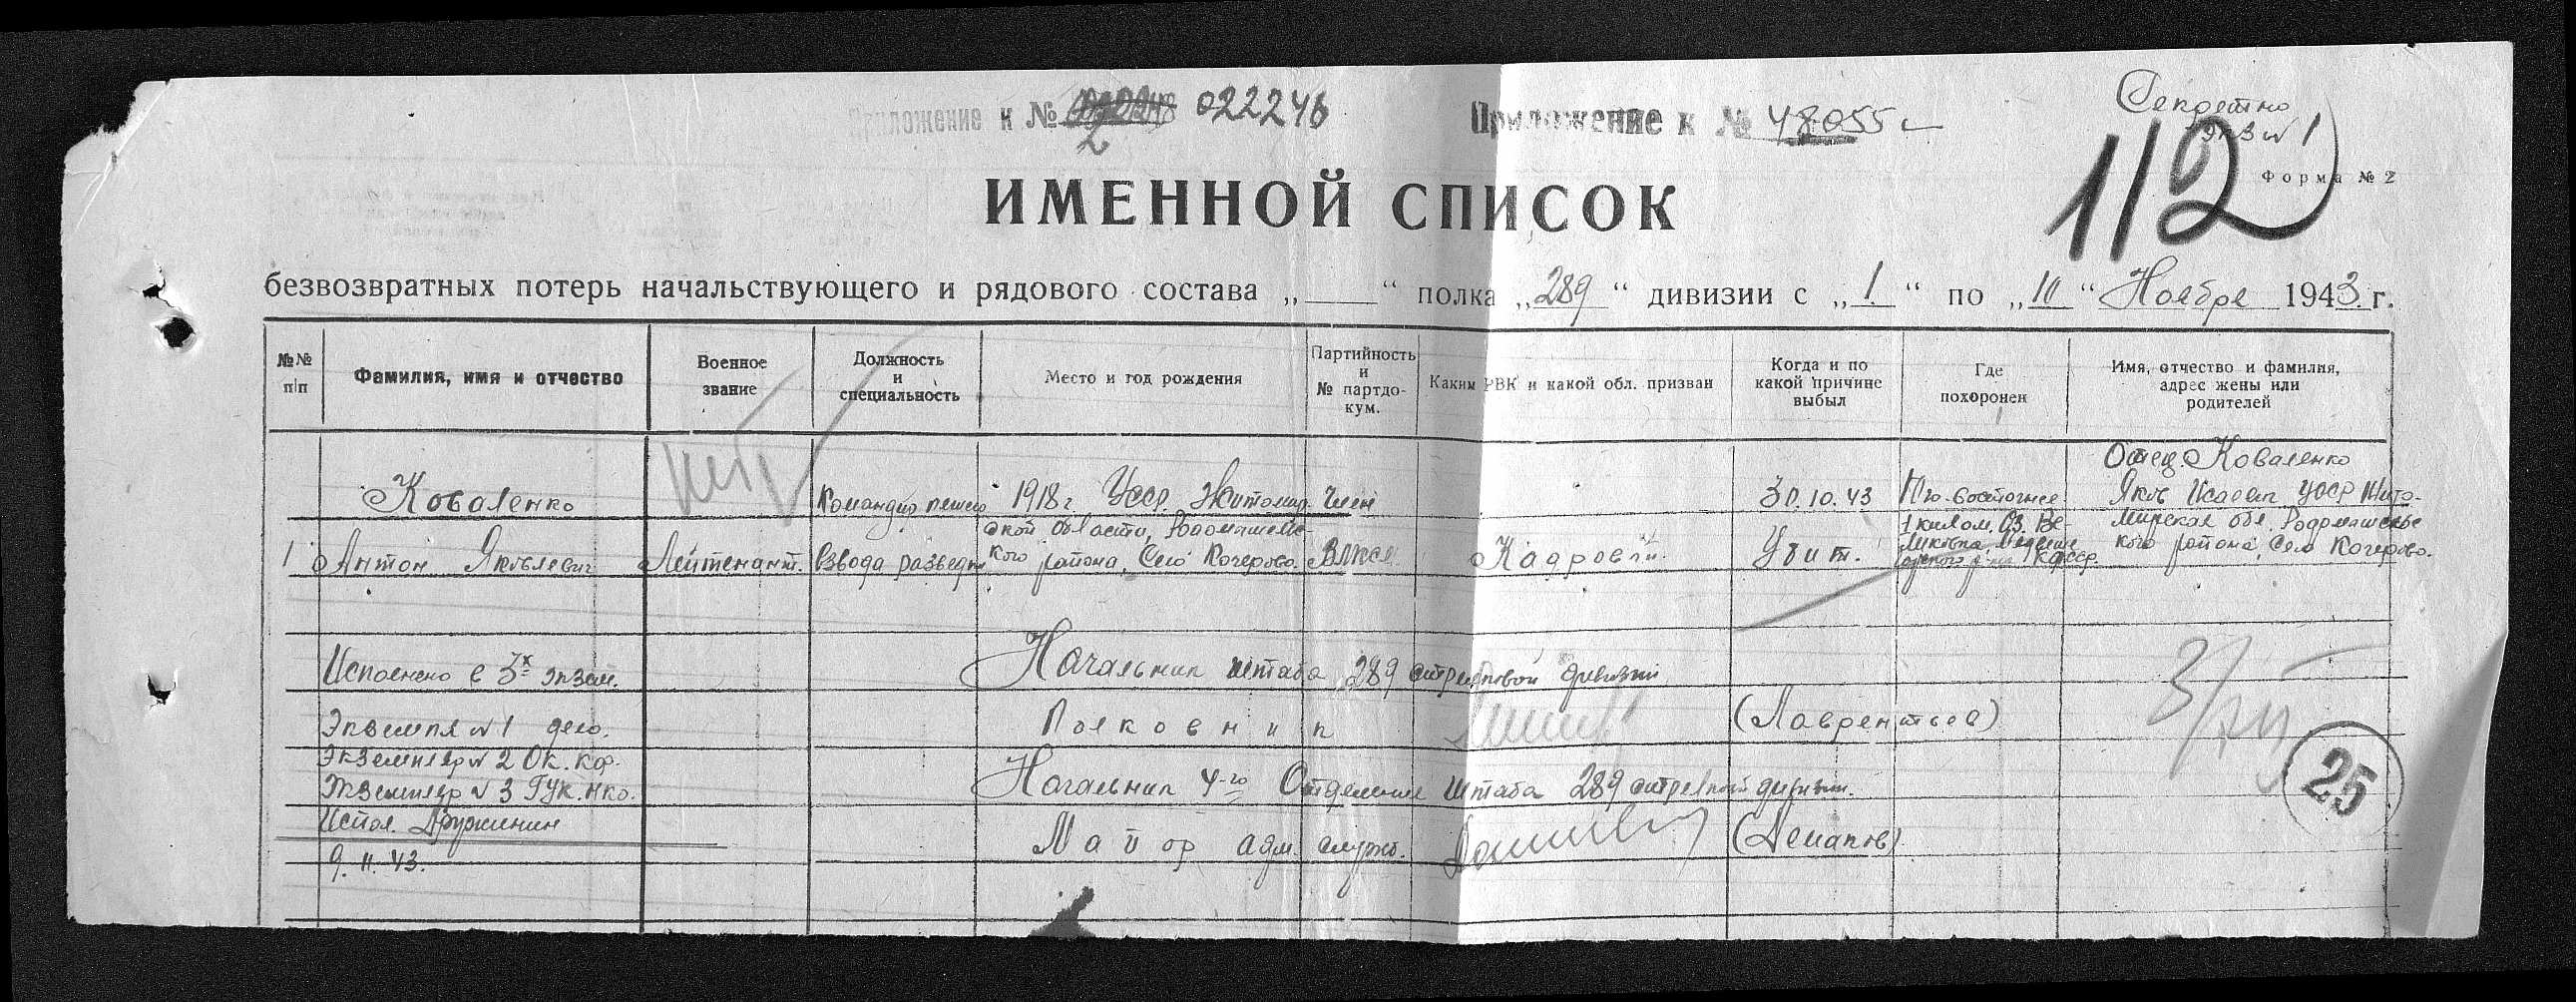 Приложение к № 022246
Приложение к № 48055с
Секретно
экз № 1
112
Форма № 2
ИМЕННОЙ СПИСОК
безвозвратных потерь начальствующего и рядового состава „ “ полка „289“ дивизии с „1“ по „10“ Ноября 1943 г.
№№ п/п
Фамилия, имя и отчество
Военное звание
Должность и специальность
Место и год рождения
Партийность и № партдокум.
Каким РВК и какой обл. призван
Когда и по какой причине выбыл
Где похоронен
Имя, отчество и фамилия, адрес жены или родителей
1
Коваленко
Антон Яковлевич
Лейтенант.
Командир пешего
взвода разведки
1918 г. УССР, Житомир
ской области, Радомышльс
кого района, Село Кочерово.
Член
ВЛКСМ
Кадровый.
30.10.43
Убит.
Юго-восточнее
1 килом. Оз.
КФССР.
Отец. Коваленко
Яков УССР Жито-
мирская обл. Радомышльс
кого района, Село Кочерово.
Исполнено в 3х экзем.
Экземпл № 1 дело.
Экземпляр № 2 Ок. кар.
Экземпляр № 3 ГУК. НКО.
Испол. Дружинин
9.11.43.
Начальник штаба 289 стрелковой дивизии
Полковник (Лаврентьев)
Начальник 4-го Отделения штаба 289 стрелковой дивизии.
Майор адм. службы.
25